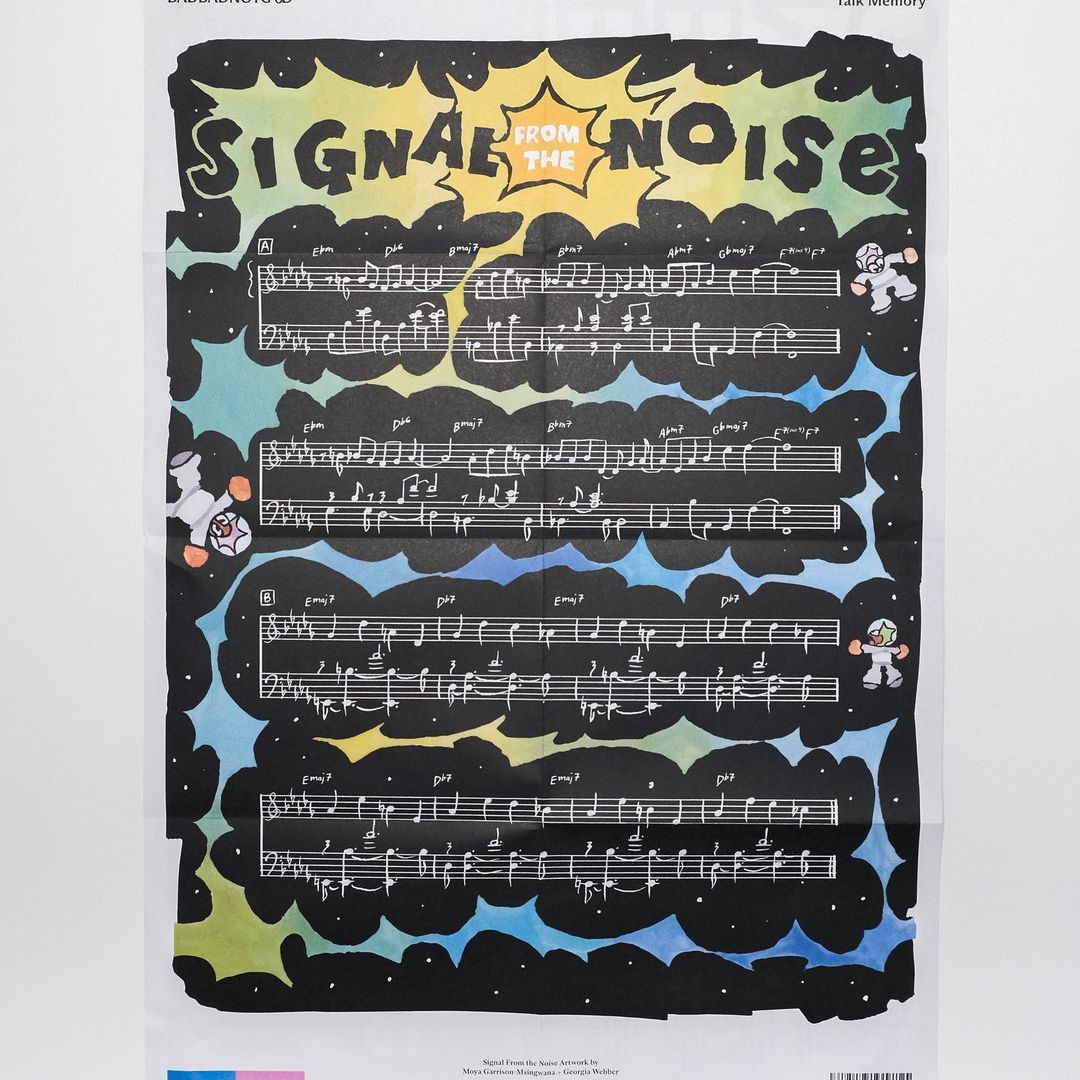 BADBADNOTGOOD
Talk Memory
SIGNAL FROM THE NOISE
A
Ebm Db6 Bmaj7 Bbm7 Abm7 Gbmaj7 F7(no9) F7
Ebm Db6 Bmaj7 Bbm7 Abm7 Gbmaj7 F7(no9) F7
3 3
3 3
B
Emaj7 Db7 Emaj7 Db7
3 3 3 3
Emaj7 Db7 Emaj7 Db7
3 3 3 3
Signal From the Noise Artwork by
Moya Garrison-Msingwana + Georgia Webber